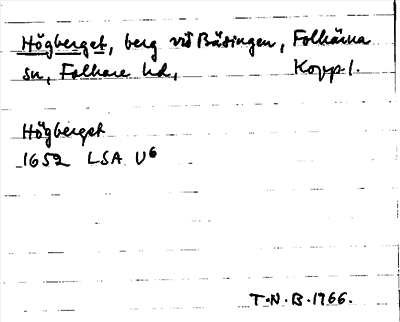 Högberget, berg vid Bäsingen, Folkärna
sn, Folkare hd, Kopp l.
Högberget
1652 LSA U6
T.N.B. 1966.